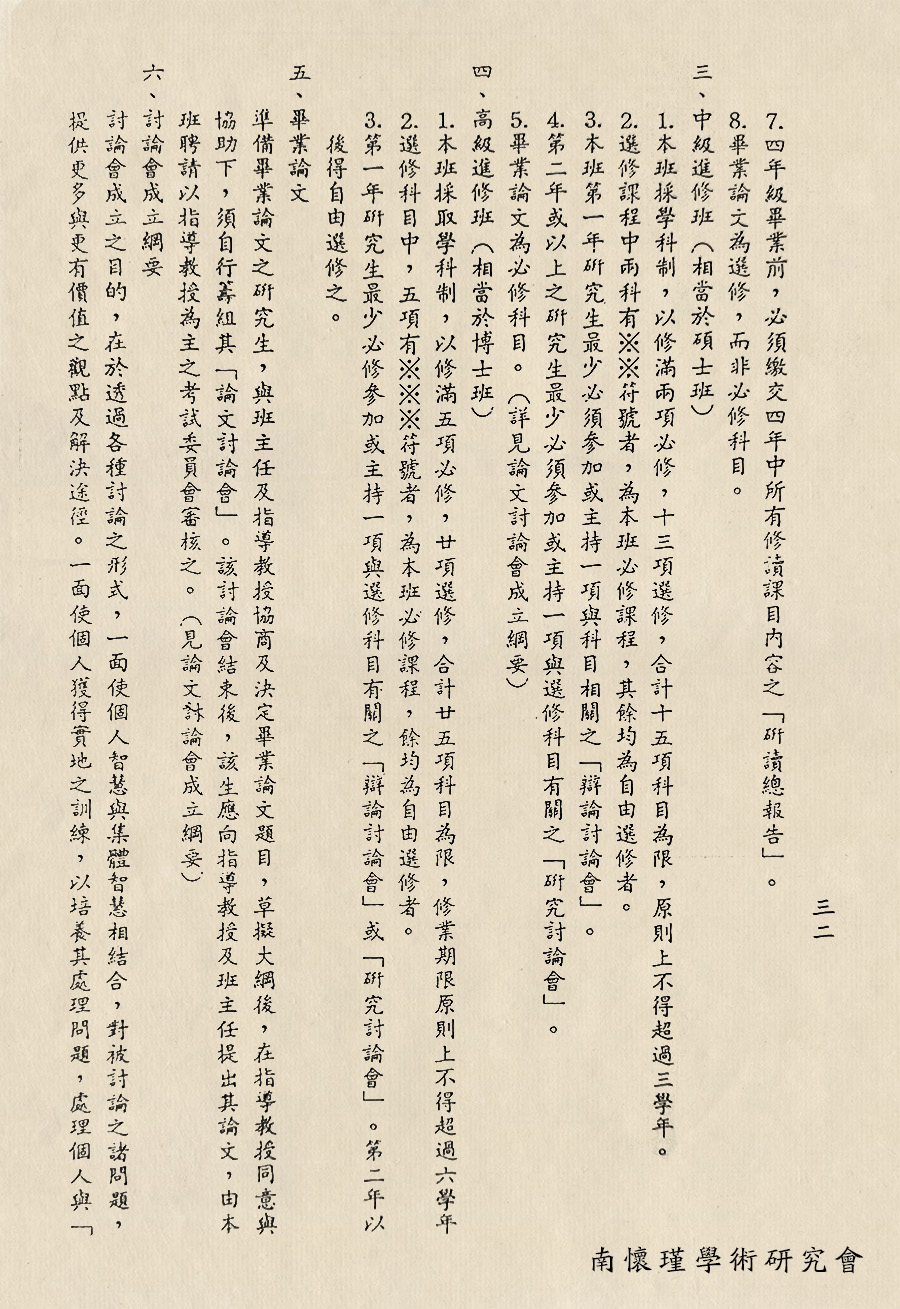 三二
7.四年級畢業前，必須繳交四年中所有修讀課目內容之「研讀總報告」。
8.畢業論文為選修，而非必修科目。
三、中級進修班（相當於碩士班）
1.本班採學科制，以修滿兩項必修，十三項選修，合計十五項科目為限，原則上不得超過三學年。
2.選修課程中兩科有※※符號者，為本班必修課程，其餘均為自由選修者。
3.本班第一年研究生最少必須參加或主持一項與科目相關之「辯論討論會」。
4.第二年或以上之研究生最少必須參加或主持一項與選修科目有關之「研究討論會」。
5.畢業論文為必修科目。（詳見論文討論會成立綱要）
四、高級進修班（相當於博士班）
1.本班採取學科制，以修滿五項必修，廿項選修，合計廿五項科目為限，修業期限原則上不得超過六學年
2.選修科目中，五項有※※※符號者，為本班必修課程，餘均為自由選修者。
3.第一年研究生最少必修參加或主持一項與選修科目有關之「辯論討論會」或「研究討論會」。第二年以
後得自由選修之。
五、畢業論文
準備畢業論文之研究生，與班主任及指導教授協商及決定畢業論文題目，草擬大綱後，在指導教授同意與
協助下，須自行籌組其「論文討論會」。該討論會結束後，該生應向指導教授及班主任提出其論文，由本
班聘請以指導教授為主之考試委員會審核之。（見論文討論會成立綱要）
六、討論會成立綱要
討論會成立之目的，在於透過各種討論之形式，一面使個人智慧與集體智慧相結合，對被討論之諸問題，
提供更多與更有價值之觀點及解決途徑。一面使個人獲得實地之訓練，以培養其處理問題，處理個人與「
南懷瑾學術研究會